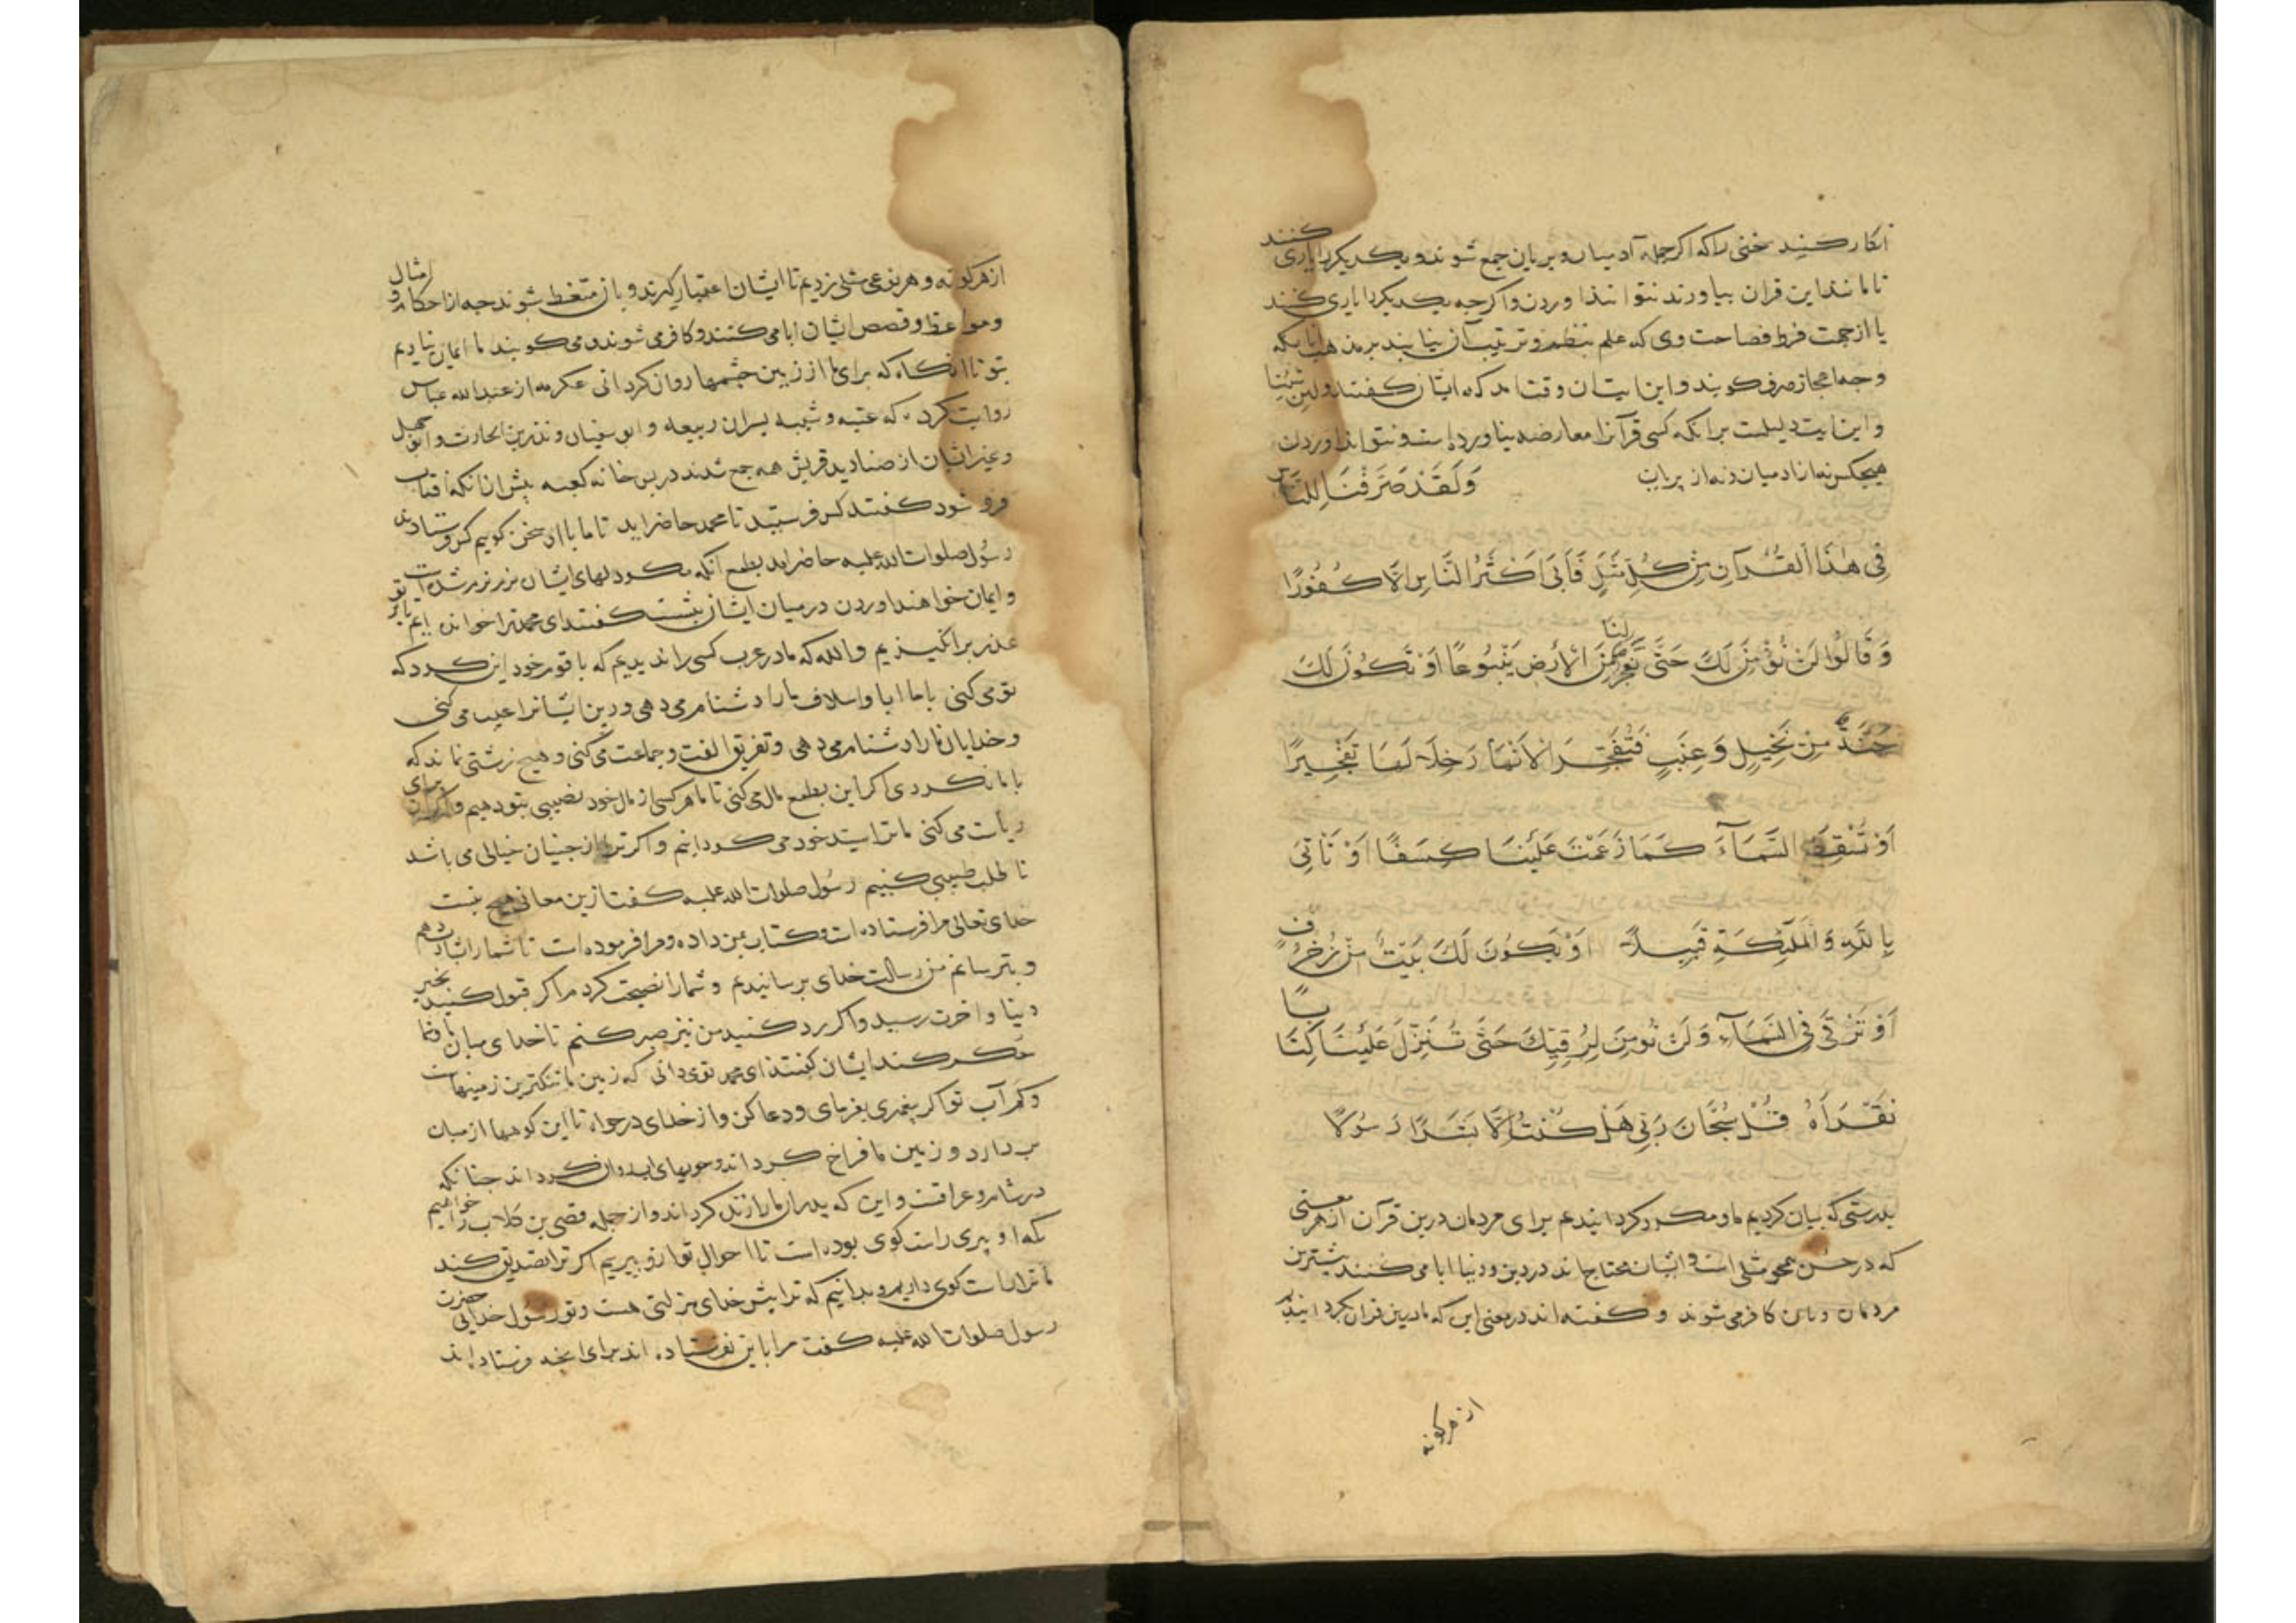 انکار کنید خنی را که اگر جمله آدمیان و پریان جمع شوند و یکدیگر را یاری کنند
تا مانند این قران بیاورند نتوانند اوردن و اگرچه یکدیگر را یاری کنند
یا از جهت فرط فصاحت وی که علم بنظم و ترتیب آن نیابند بر مذهب انا نکه
وجه اعجاز صرف کویند و این ایتان وقت امد که ایشان کفتند ولین شئنا
و این ایت دلیلست بر انکه کسی قرآنرا معارضه نیاورده است و نتواند اوردن
هیچکس نه از ادمیان و نه از پریان وَلَقَدْ صَرَّفْنَا لِلنَّاسِ
فِی هٰذَا الْقُرْآنِ مِنْ کُلِّ مَثَلٍ فَاَبَی اَکْثَرُ النَّاسِ اِلَّا کُفُورًا
وَ قَالُوا لَنْ نُؤْمِنَ لَکَ حَتَّی تَفْجُرَ لَنَا مِنَ الْاَرْضِ یَنْبُوعًا اَوْ تَکُونَ لَکَ
جَنَّةٌ مِنْ نَخِیلٍ وَ عِنَبٍ فَتُفَجِّرَ الْاَنْهَارَ خِلَالَهَا تَفْجِیرًا
اَوْ تُسْقِطَ السَّمَآءَ کَمَا زَعَمْتَ عَلَیْنَا کِسَفًا اَوْ تَاْتِیَ
بِاللّٰهِ وَ الْمَلٰٓئِکَةِ قَبِیلًا اَوْ یَکُونَ لَکَ بَیْتٌ مِنْ زُخْرُفٍ
اَوْ تَرْقَی فِی السَّمَآءِ وَلَنْ نُؤْمِنَ لِرُقِیِّکَ حَتَّی تُنَزِّلَ عَلَیْنَا کِتَابًا
نَقْرَاَهُ قُلْ سُبْحَانَ رَبِّی هَلْ کُنْتُ اِلَّا بَشَرًا رَسُولًا
بدرستی که بیان کردیم ما و مکرر کردانیدیم برای مردمان درین قرآن از هر معنی
که در حسن همچو مثلی است و ایشان محتاج اند در دین و دنیا ابا می کنند بیشترین
مردمان و بان کافر می شوند و کفته اند در معنی این که ما درین قران کردانیدیم
از هرکونه
از هر کونه و هر نوعی مثلی زدیم تا ایشان اعتبار کیرند و بان متعظ شوند چه از احکام و امثال
و مواعظ و قصص ایشان ابا می کنند و کافر می شوند و می کویند ما ایمان نیاریم
بتو تا انکاه که برای ما از زمین چشمها روان کردانی عکرمه از عبدالله عباس
روایت کرده که عتبه و شیبه پسران ربیعه و ابو سفیان و نضر بن الحارث و ابو جهل
و غیر ایشان از صنادید قریش همه جمع شدند در پس خانه کعبه پیش از انکه افتاب
فرو شود کفتند کس فرستید تا محمد حاضر اید تا ما با او سخن کوییم کس فرستادند
رسول صلوات الله علیه حاضر امد بطمع آنکه مکر دلهای ایشان نرم تر شده است
و ایمان خواهند اوردن در میان ایشان بنشست کفتند ای محمد ترا خوانده ایم تا بر تو
عذر برانکیزیم والله که ما در عرب کسی را ندیدیم که با قوم خود این کرد که
تو می کنی با ما ابا و اسلاف ما را دشنام می دهی و دین ایشانرا عیب می کنی
و خدایان ما را دشنام می دهی و تفریق الفت و جماعت می کنی و هیچ زشتی نماند که
با ما نکردی اکر این بطمع مال می کنی تا ما هر کسی از مال خود نصیبی بتو دهیم و اکر ان برای
ریاست می کنی ما ترا سید خود می کردانیم و اکر ترا از جنیان خیالی می باشد
تا طلب طبیبی کنیم رسول صلوات الله علیه کفت ازین معانی هیچ نیست
خدای تعالی مرا فرستاده است و کتاب بمن داده و مرا فرموده است تا شما را بشارت دهم
و بترسانم من رسالت خدای برسانیدم و شما را نصیحت کردم اکر قبول کنید بخیر
دنیا و اخرت رسید و اکر رد کنید من نیز صبر کنم تا خدای میان ما و شما
حکم کند ایشان کفتند ای محمد تو می دانی که زمین ما تنکترین زمینهاست
و کم آب تو اکر پیغمبری بفرمای و دعا کن و از خدای درخواه تا این کوهها از میان
بردارد و زمین ما فراخ کرداند و جویهای اب روان کرداند چنانکه
در شام و عراقست و این که پدران ما را زنده کرداند و از جمله قصی بن کلاب را خواهیم
که او پیری راست کوی بوده است تا احوال تو ازو بپرسیم اکر ترا تصدیق کند
ما ترا راست کوی داریم و بدانیم که ترا پیش خدای منزلتی هست و تو رسول خدایی حضرت
رسول صلوات الله علیه کفت مرا باین نفرستاده اند برای انچه فرستاده اند